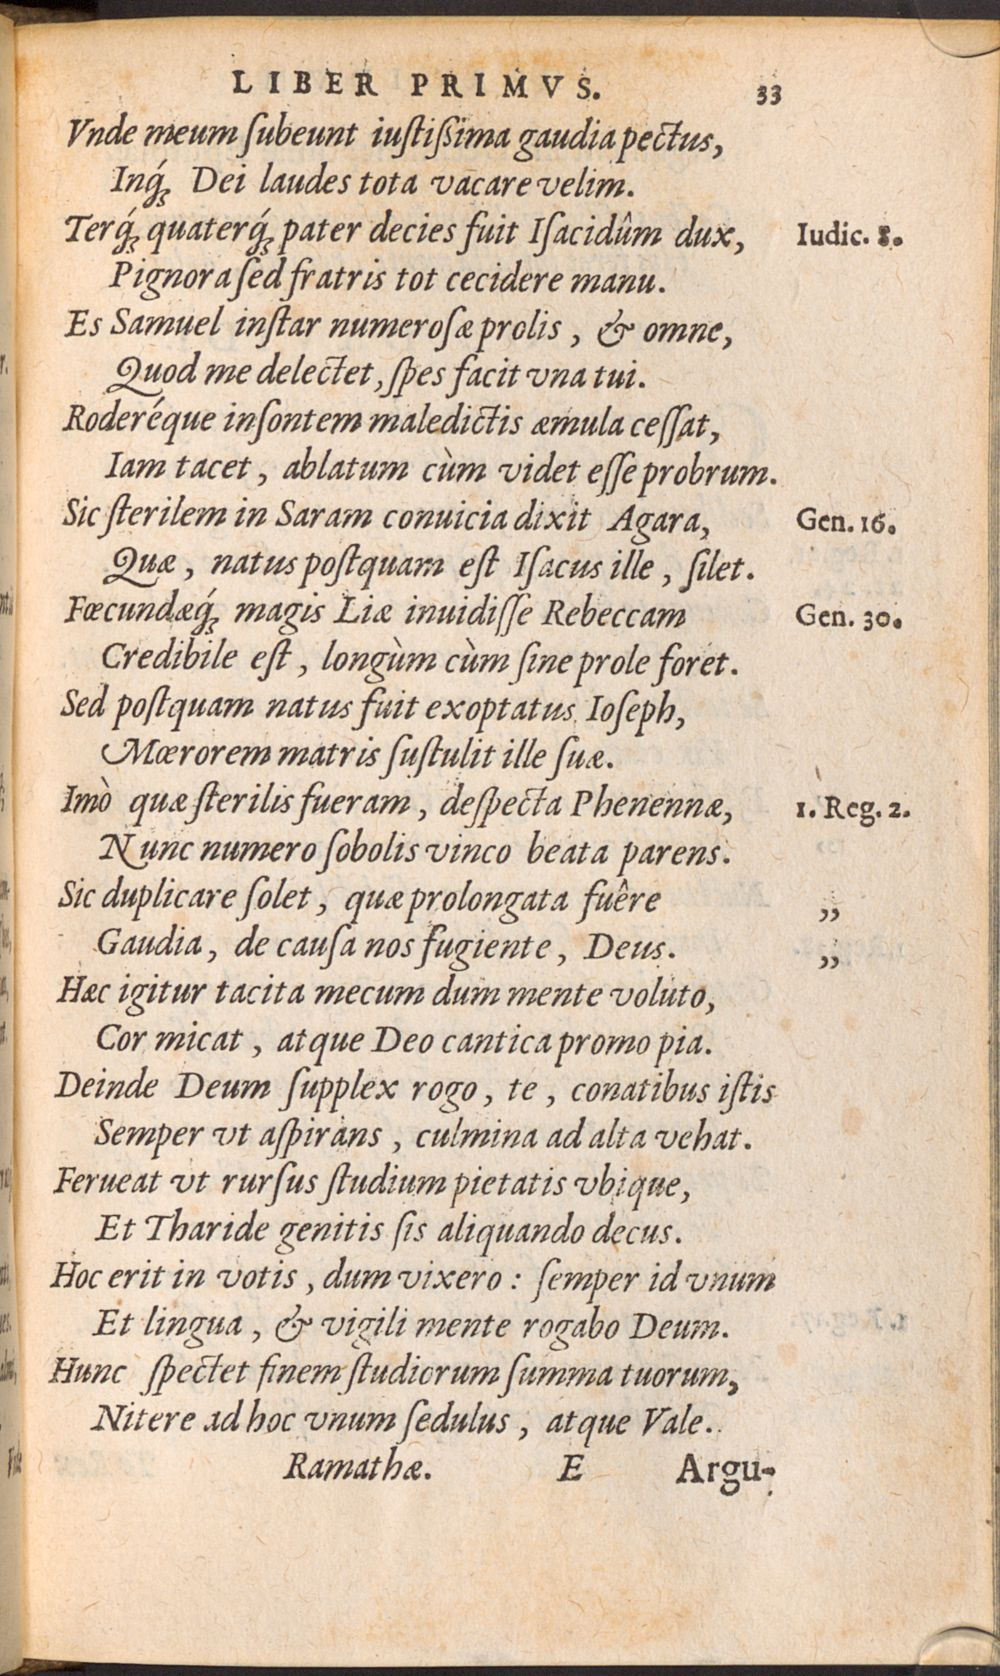 LIBER PRIMVS. 33
Vnde meum ſubeunt iuſtißima gaudia pectus,
Inq́ꝫ Dei laudes tota vacare velim.
Terq́ꝫ quaterq́ꝫ pater decies fuit Iſacidûm dux, Iudic. 8.
Pignora ſed fratris tot cecidere manu.
Es Samuel inſtar numeroſæ prolis, & omne,
Quod me delectet, ſpes facit vna tui.
Roderéque inſontem maledictis æmula ceſſat,
Iam tacet, ablatum cùm videt eſſe probrum.
Sic ſterilem in Saram conuicia dixit Agara, Gen. 16.
Quæ, natus poſtquam eſt Iſacus ille, ſilet.
Fœcundæq́ꝫ magis Liæ inuidiſſe Rebeccam Gen. 30.
Credibile eſt, longùm cùm ſine prole foret.
Sed poſtquam natus fuit exoptatus Ioſeph,
Mœrorem matris ſuſtulit ille ſuæ.
Imò quæ ſterilis fueram, deſpecta Phenennæ, 1. Reg. 2.
Nunc numero ſobolis vinco beata parens.
Sic duplicare ſolet, quæ prolongata fuêre „
Gaudia, de cauſa nos fugiente, Deus. „
Hæc igitur tacita mecum dum mente voluto,
Cor micat, atque Deo cantica promo pia.
Deinde Deum ſupplex rogo, te, conatibus iſtis
Semper vt aſpirans, culmina ad alta vehat.
Ferueat vt rurſus ſtudium pietatis vbique,
Et Tharide genitis ſis aliquando decus.
Hoc erit in votis, dum vixero: ſemper id vnum
Et lingua, & vigili mente rogabo Deum.
Hunc ſpectet finem ſtudiorum ſumma tuorum,
Nitere ad hoc vnum ſedulus, atque Vale.
Ramathæ. E Argu-